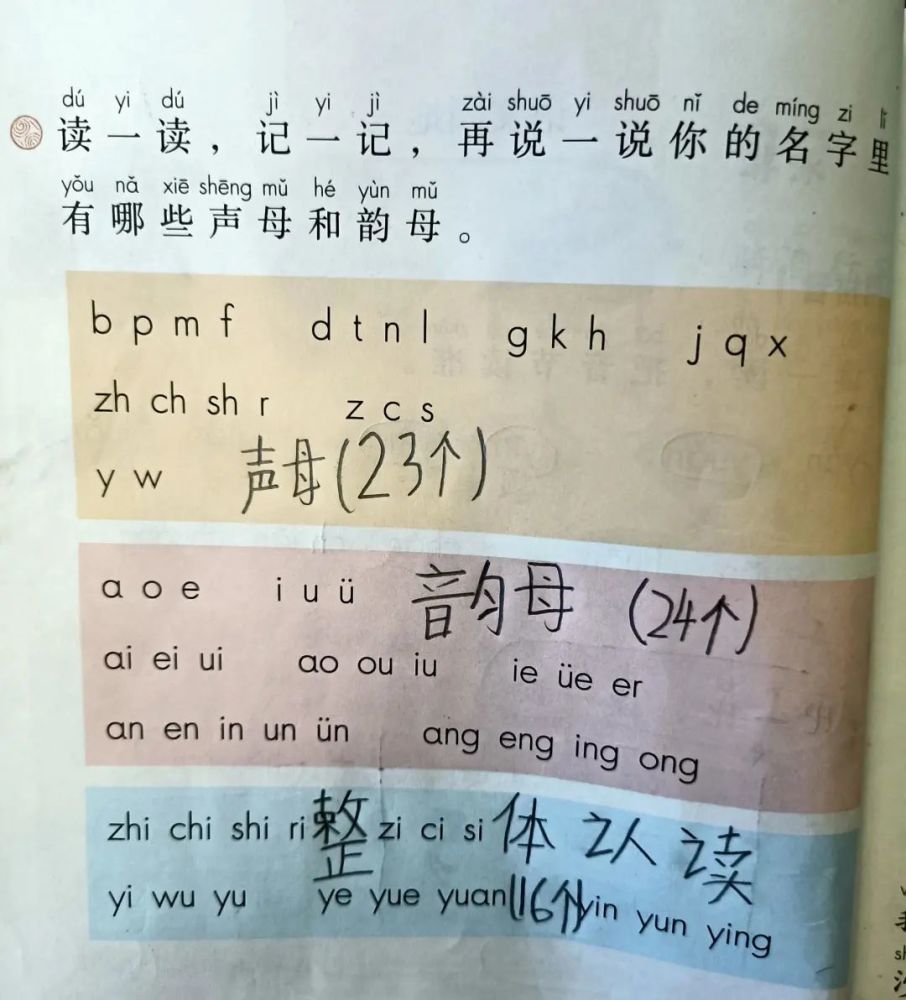 dú yi dú jì yi jì zài shuō yi shuō nǐ de míng zi lǐ
读一读，记一记，再说一说你的名字里
yǒu nǎ xiē shēng mǔ hé yùn mǔ
有哪些声母和韵母。
b p m f d t n l g k h j q x
zh ch sh r z c s
y w 声母(23个)
a o e i u ü 韵母 (24个)
ai ei ui ao ou iu ie üe er
an en in un ün ang eng ing ong
zhi chi shi ri 整 zi ci si 体 认 读
yi wu yu ye yue yuan (16个) yin yun ying